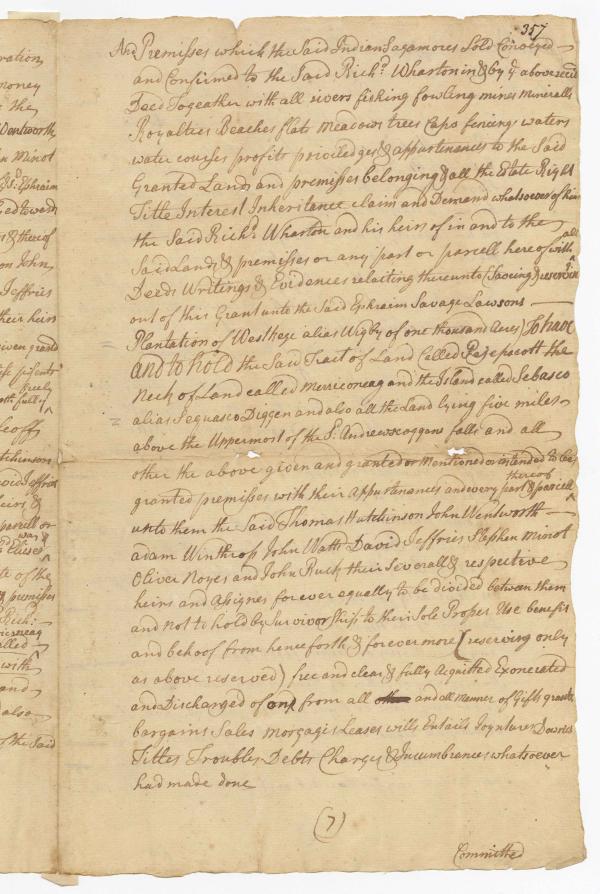 357
And Premisses which the Said Indian Sagamores Sold Conveyed
and Confirmed to the Said Richd. Wharton in & by ye above recited
Deed Togeather with all rivers fishing fowling mines Mineralls
Royalties Beaches flats meadows trees fencing waters
water courses profits priviledges & appurtenances to the Said
Granted Lands and premisses belonging & all the Estate Right
Title Interest Inheritance claim and Demand whatsoever of him
the Said Richd. Wharton and his heirs of in and to the
Said Lands & premisses or any part or parcell hereof with all
Deeds Writings & Evidences relaiting thereunto (Saveing & reserving
out of this Grant unto the Said Ephraim Savage Lawsons
Plantation of alias Wigby of one thousand Acres) To have
and to hold the Said Tract of Land Called Pajepscott the
Neck of Land called Merriconeag and the Island called Sebasco
alias Sequasco Diggen and also all the Land lying five miles
above the Uppermost of the Sd. Andrewscoggan falls and all
other the above given and granted or Mentioned or intended to be
granted premisses with their Appurtenances and every part & parcell thereof
unto them the Said Thomas Hutchinson John Wentworth
Adam Winthrop John Watts David Jeffries Stephen Minot
Oliver Noyes and John Ruck their Severall & respective
heirs and Assignes forever equally to be divided between them
and not to hold by Survivorship to their Sole Proper Use benefit
and behoof from henceforth & forever more (reserving only
as above reserved) free and clear & fully Acquitted Exonerated
and Discharged of and from all and all manner of Gifts grants
bargains Sales Morgages Leases wills Entails Joyntures Dowries
Titles Troubles Debts Charges & Incumbrances whatsoever
had made done
(7)
Committed
ration
money
the
Wentworth
Minot
Sd. Ephraim
& thereof
on John
Jeffries
their heirs
given granted
freely
Hutchinson
David Jeffries
heirs &
parcell or
was &
of the
premisses
Rich:
Merriconeag
alled
with
and
also
of the Said